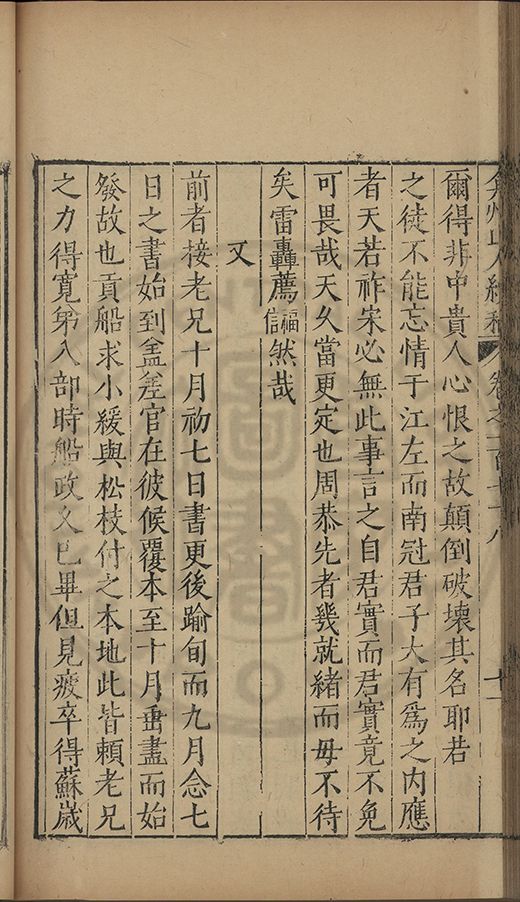 弇州山人續稿 卷之一百七十八 十一
爾得非中貴人心恨之故顛倒破壞其名耶若
之徒不能忘情于江左而南冠君子大有爲之内應
者天若祚宋必無此事言之自君實而君實竟不免
可畏哉天久當更定也周恭先者幾就緒而毋不待
矣雷轟薦福信然哉
又
前者接老兄十月初七日書更後踰旬而九月念七
日之書始到盖差官在彼候覆本至十月垂盡而始
發故也貢船求小緩與松枝付之本地此皆頼老兄
之力得寛第入部時船政又已畢但見疲卒得蘇歲